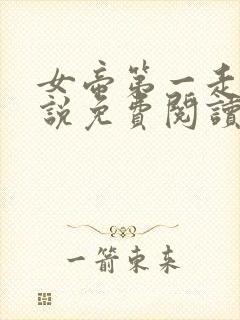 女帝第一走
說免費閱讀
一箭東來